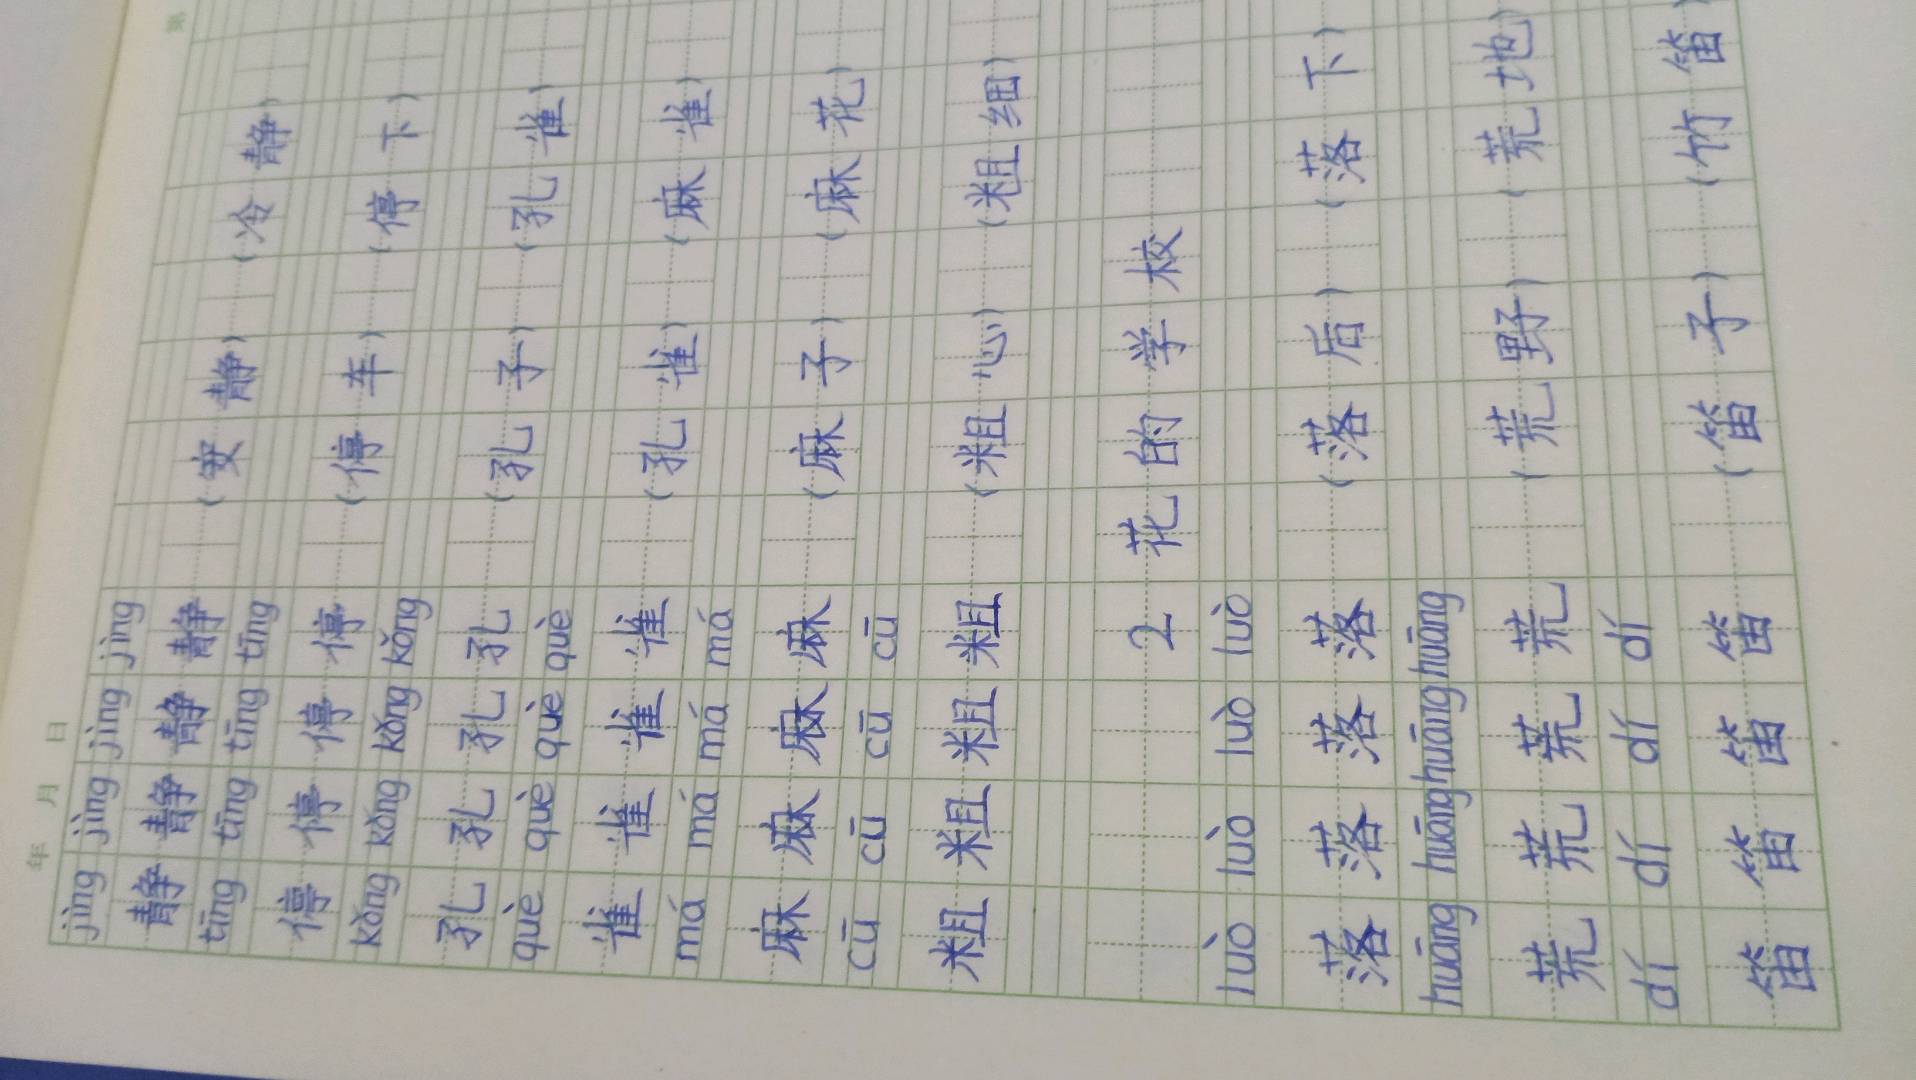 第
年 月 日
jìng jìng jìng jìng
静 静 静 静 (安 静) (冷 静)
tíng tíng tíng tíng
停 停 停 停 (停 车) (停 下)
kǒng kǒng kǒng kǒng
孔 孔 孔 孔 (孔 子) (孔 雀)
què què què què
雀 雀 雀 雀 (孔 雀) (麻 雀)
má má má má
麻 麻 麻 麻 (麻 子) (麻 花)
cū cū cū cū
粗 粗 粗 粗 (粗 心) (粗 细)
2 花 的 学 校
luò luò luò luò
落 落 落 落 (落 后) (落 下)
huāng huāng huāng huāng
荒 荒 荒 荒 (荒 野) (荒 地)
dí dí dí dí
笛 笛 笛 笛 (笛 子) (竹 笛)